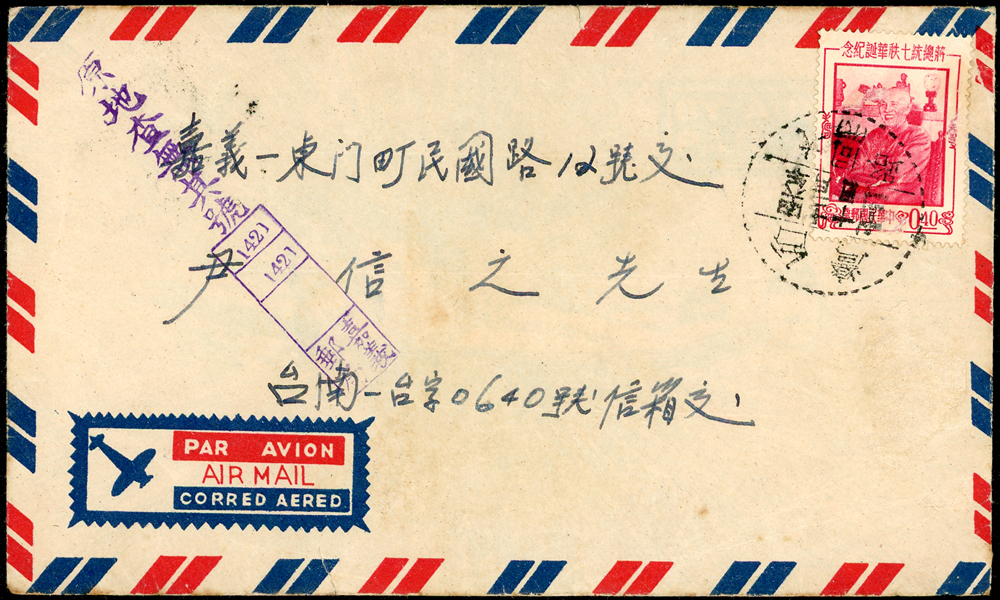 原地查無其號
1421
1421
嘉義
蔣總統七秩華誕紀念
中華民國郵票
0.40
嘉義－東门町民國路12號交.
尹信之先生
台南－台字0640號信箱交.
PAR AVION
AIR MAIL
CORRED AERED